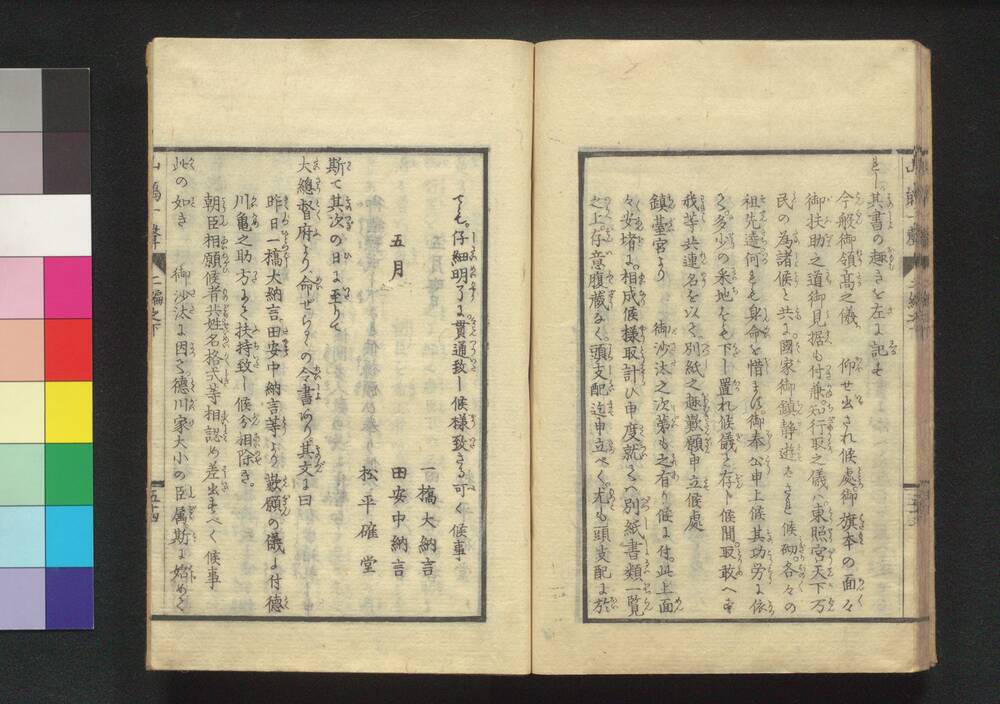 其書の趣きを左に記せり
今般御領高之儀、仰せ出され候處御旗本の面々
御扶助之道御見据も付兼、知行取之儀ハ東照宮天下万
民の為諸候と共に國家御鎮静遊され候砌、各々の
祖先遠何れも身命を惜まず御奉公申上候其功労に依
多少の采地を下し置れ候儀と存じ候間取敢へず
我等共連名を以て別紙之趣歎願申立候處
鎮臺宮より 御沙汰之次第も之有り候に付、此上面
々安堵に相成候様取計ひ申度就てハ別紙書類一覧
之上、存意腹蔵なく頭支配迄申立べく、尤も頭支配に於
ても仔細明了に貫通致し候様致さる可く候事
五月
一橋大納言
田安中納言
松平確堂
斯て其次の日に至りて
大總督府より命せらるゝの令書あり其文に曰
昨日一橋大納言田安中納言等より歎願の儀に付德
川亀之助方にて扶持致し候分相除き
朝臣相願候者共姓名格式等相認め差出すべく候事
此の如き 御沙汰に因る德川家大小の臣属斯に始めて
二編之下
五十四